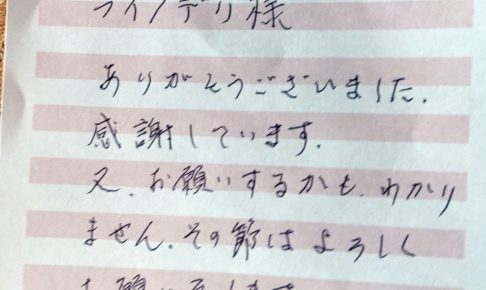 ライフデリ様
ありがそうございました.
感謝しています.
又、お願いするかも、わかり
ません.その節はよろしく
お願いします